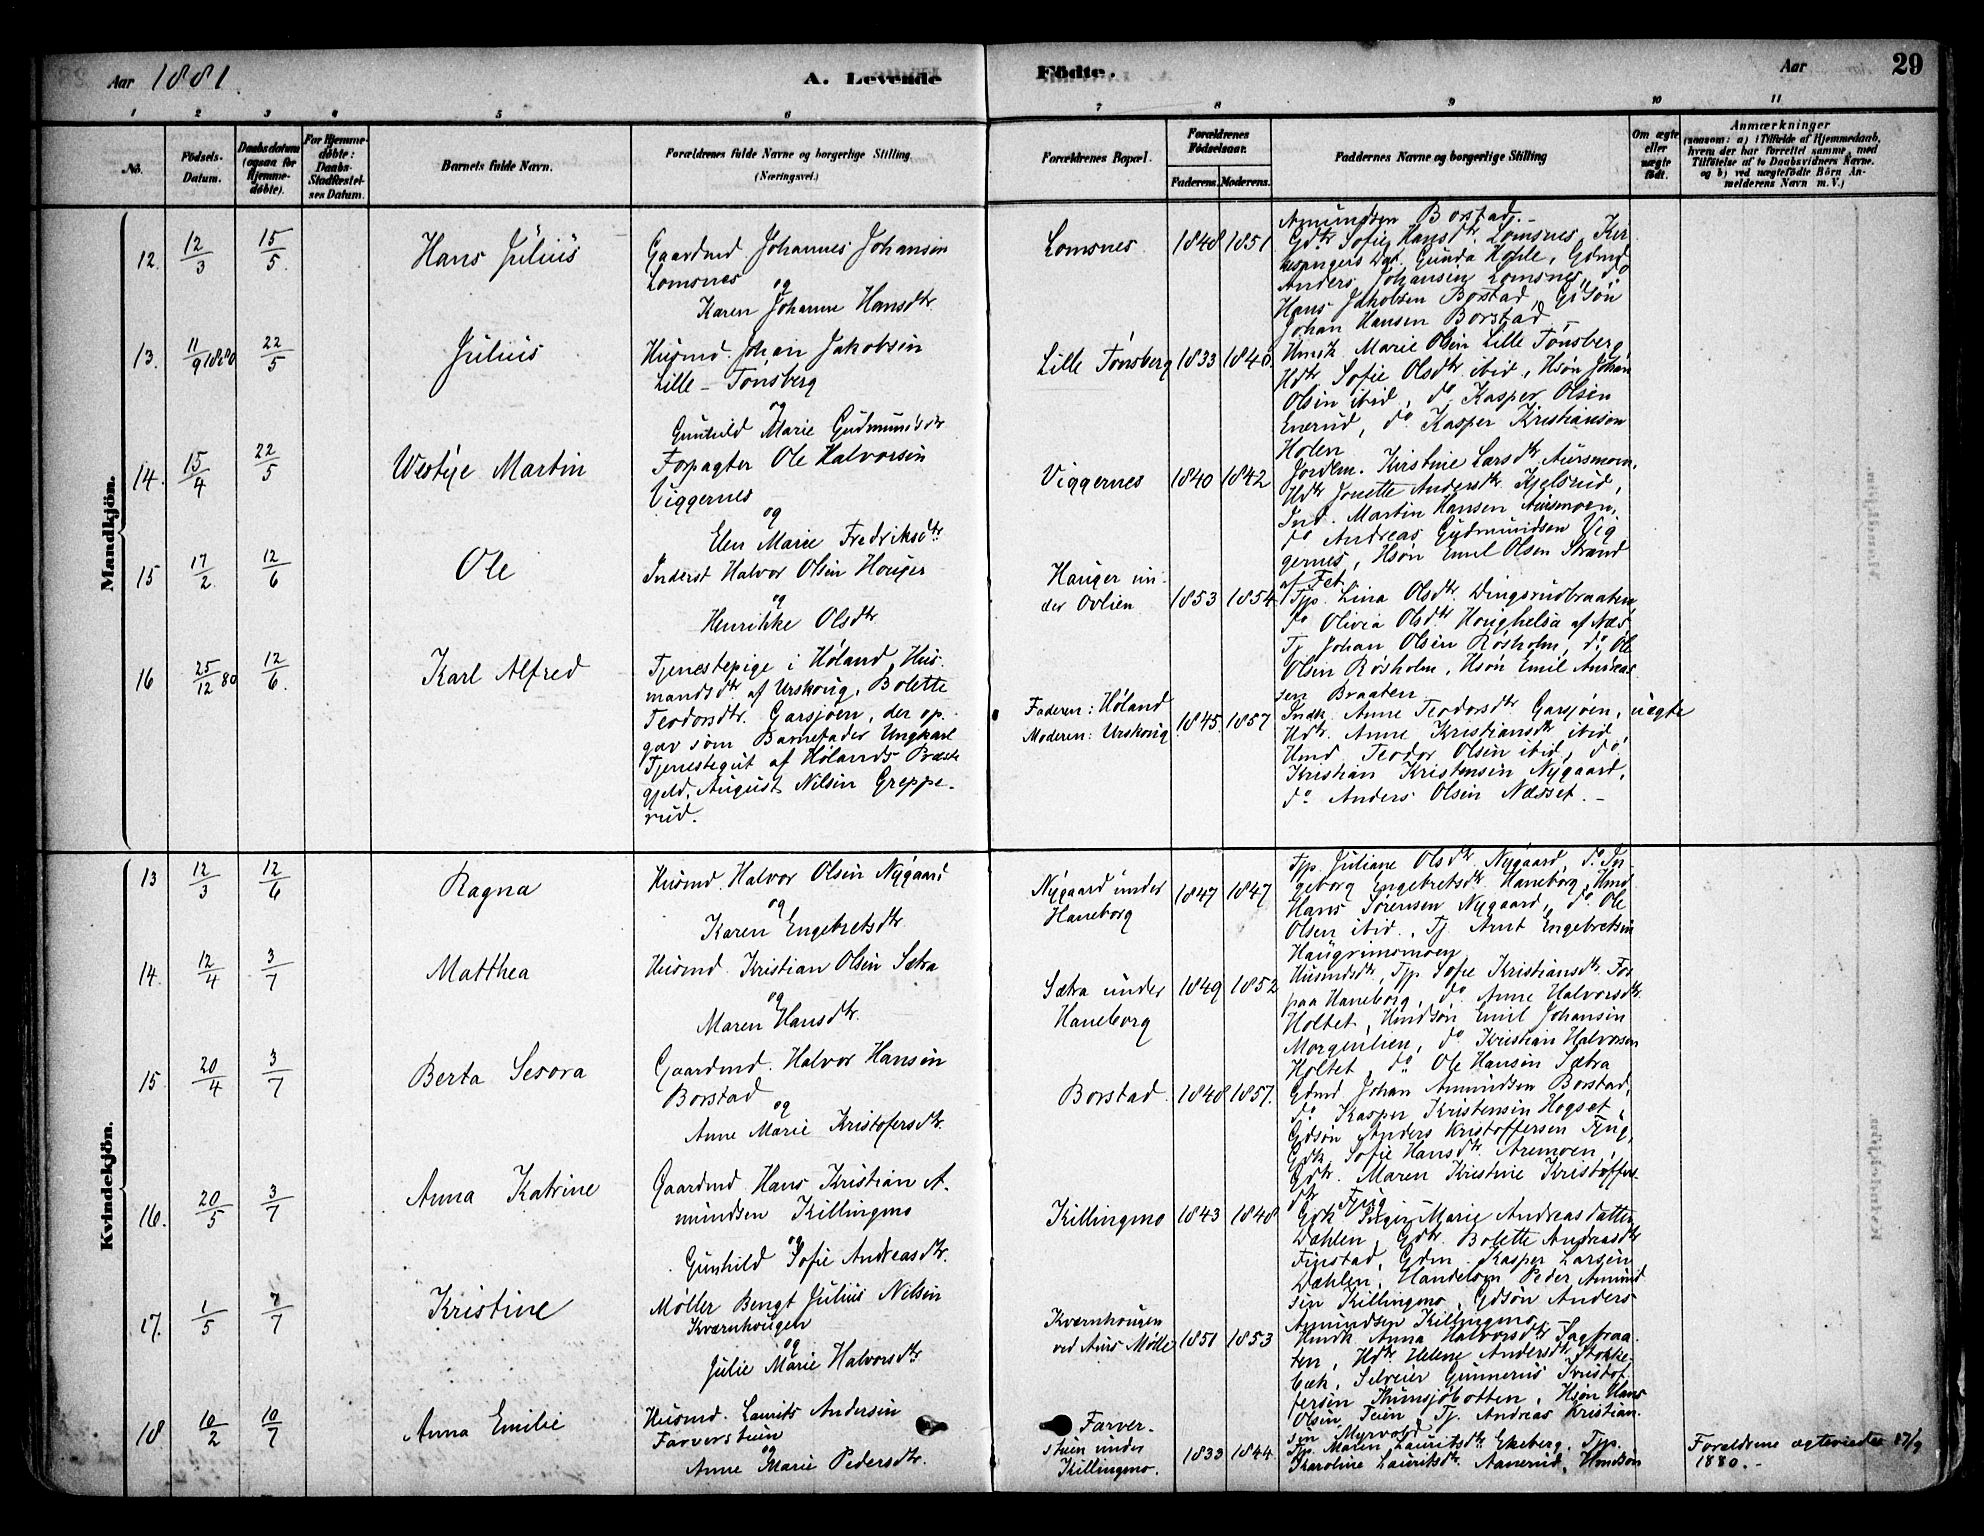 Aar 1881.
A. Levende
Födte.
Aar
29
1 2 3 4 5 6 7 8 9 10 11
No.
Födsels-Datum.
Daabsdatum (ogsaa for Hjemme-döbte).
For Hjemme-döbte: Daabs-Stadfæstel-ses Datum.
Barnets fulde Navn.
Forældrenes fulde Navne og borgerlige Stilling (Næringsvei.)
Forældrenes Bopæl.
Forældrenes Födselsaar.
Faderens. Moderens.
Faddernes Navne og borgerlige Stilling
Om ægte eller uægte födt.
Anmærkninger
(saasom: a) i Tilfælde af Hjemmedaab, hvem der har forrettet samme, med Tilföielse af to Daabsvidners Navne, og b) ved uægtefödte Börn An-melderens Navn m. V.)
Mandkjön.
12. 12/3 15/5. Hans Julius
Gaardmd Johannes Johansen
Lomsnes
og
Karen Johanne Hansdtr.
Lomsnes 1848 1851
Amundsen Borstad.
Gdtr Sofie Hansdtr. Lomsnes, Kir
kesangers Dat. Gunda Hohle, Gdmd
Anders Johansen Lomsnes, do
Hans Jakobsen Borstad, Gdsøn
Johan Hansen Borstad
13. 11/9 1880 22/5 Julius
Husmd. Johan Jakobsen
Lille-Tønsberg
og
Gunhild Marie Gudmundsdtr
Lille Tønsberg 1833 1840.
Hmk Marie Olsen Lille Tønsberg,
Hdtr Sofie Olsdtr. ibid, Hsøn Johan
Olsen ibid, do Kasper Olsen
Enerud, do Kasper Kristiansen
Holen
14. 15/4 22/5 Westye Martin
Forpagter Ole Halvorsen
Viggernes
og
Elen Marie Fredriksdtr
Viggernes 1840 1842
Jordem. Kirstine Larsdtr. Aursmoen,
Hdtr Jonette Andersdtr. Kjelsrud,
Ind. Martin Hansen Aursmoen,
do Andreas Gudmundsen Vig
gernes, Hsøn Emil Olsen Strand
af Fet.
15 17/2 12/6 Ole
Inderst Halvor Olsen Houger
og
Henrikke Olsdtr
Hauger un-
der Ovlien 1853 1854
Tjp. Lina Olsdtr. Dingsrudbraaten,
do Olivia Olsdtr Houghelsa af Næs
Tj Johan Olsen Røsholm, do Ole
Olsen Røsholm, Hsøn Emil Andreas
sen Braaten
16 25/12 80 12/6. Karl Alfred
Tjenestepige i Høland, Hus
mandsdtr af Urskoug, Bolette
Teodorsdtr. Garsjøen, der op-
gav som Barnefader Ungkarl
Tjenestegut af Hølands Præste
gjeld, August Nilsen Greppe-
rud.
Faderen: Høland
Moderen: Urskoug 1845 1857
Indk. Anne Teodorsdtr Garsjøen, uægte
Hdtr. Anne Kristiansdtr ibid,
Hmd Teodor Olsen ibid, do
Kristian Kristensen Nygaard,
do Anders Olsen Næsset.
Kvindekjön.
13 12/3 12/6 Ragna
Husmd. Halvor Olsen Nygaard
og
Karen Engebretsdtr
Nygaard under
Haneborg 1847 1847
Tjp Juliane Olsdtr Nygaard, do In-
geborg Engebretsdtr. Haneborg, Hmd
Hans Sørensen Nygaard, do Ole
Olsen ibid, Tj Arnt Engebretsen
Haugrimsmoen
14. 12/4 3/7 Matthea
Husmd. Kristian Olsen Sætra
og
Maren Hansdtr.
Sætra under
Haneborg 1849 1852
Husmdsdtr, Tjp Sofie Kristiansdtr. Fos
paa Haneborg, do Anne Halvorsdtr.
Holtet, Hmdsøn Emil Johansen
Morgenlien, do Kristian Halvorsen
Holtet, do Ole Hansen Sætra
15. 20/4 3/7 Berta Sesora
Gaardmd. Halvor Hansen
Borstad
og
Anne Marie Kristofersdtr.
Borstad. 1848 1857.
Gdmd Johan Amundsen Borstad,
do Kasper Kristensen Hogset,
Gdsøn Anders Kristoffersen Tjug,
Gdk Sofie Hansdtr. Aremoen,
Gdtr. Maren Kristine Kristoffers-
dtr Tjug
16. 20/5 3/7 Anna Katrine
Gaardmd Hans Kristian A-
mundsen Killingmo
og
Gunhild Sofie Andreasdtr.
Killingmo 1843 1848
Gdk Inger Marie Andreasdatter
Dæhlen, Gdtr. Bolette Andreasdtr
Finstad, Gdm. Kasper Larsen
Dæhlen, Handelsm Peder Amund
sen Killingmo, Gdsøn Anders
Amundsen Killingmo
17. 1/5 7/7 Kristine
Møller Bengt Julius Nilsen
Kværnhougen
og
Julie Marie Halvorsdtr.
Kværnhougen
ved Aurs Mølle 1851 1853
Hmdk Anna Halvorsdtr Sagbraa-
ten, Hdtr. Helene Andersdtr Stokke-
bæk, Selveier Gunnerius Kristof-
fersen, Hsøn Hans
Olsen Teien, Tj. Andreas Kristian-
sen Myrvold
18 10/2 10/7 Anna Emilie
Husmd. Laurits Andersen
Farverstuen
og
Anne Marie Pedersdtr.
Farver-
stuen under
Killingmo. 1833 1844
Tjp. Maren Lauritsdtr. Ekeberg, Tjp.
Karoline Lauritsdtr. Aanerud, Hmdsøn
Forældrene ægteviede 17/9
1880.